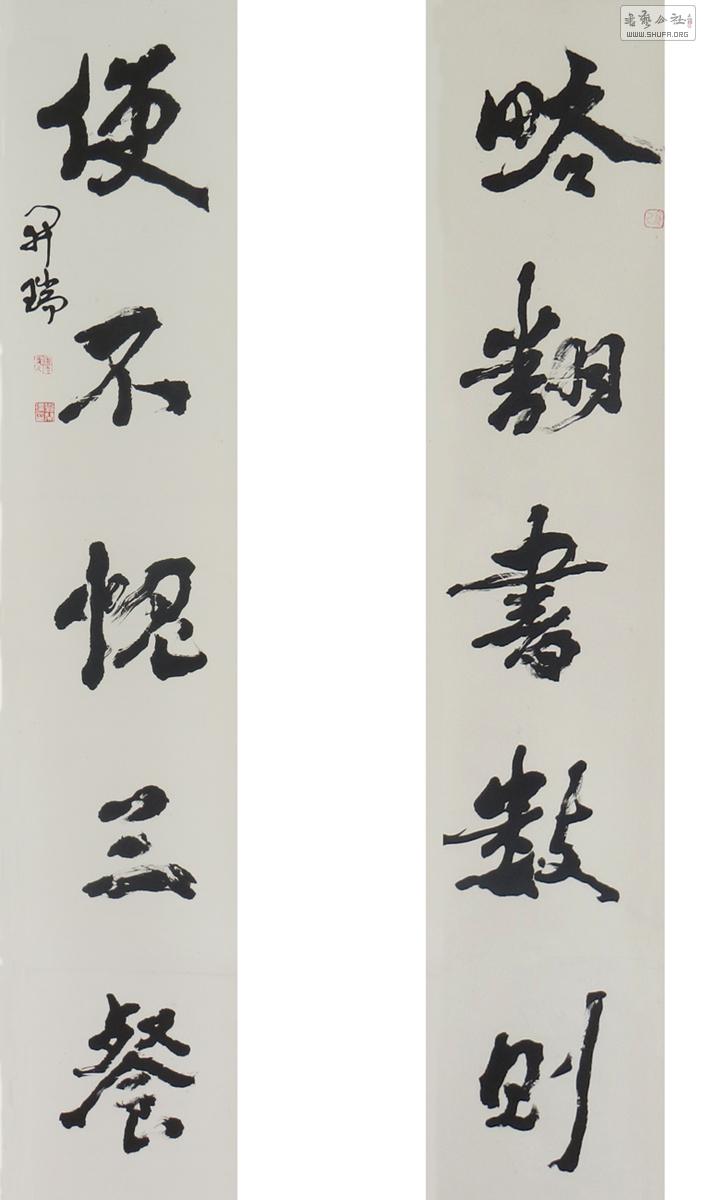 略翻書數則
便不愧三餐
開瑞
書藝公社
WWW.SHUFA.ORG